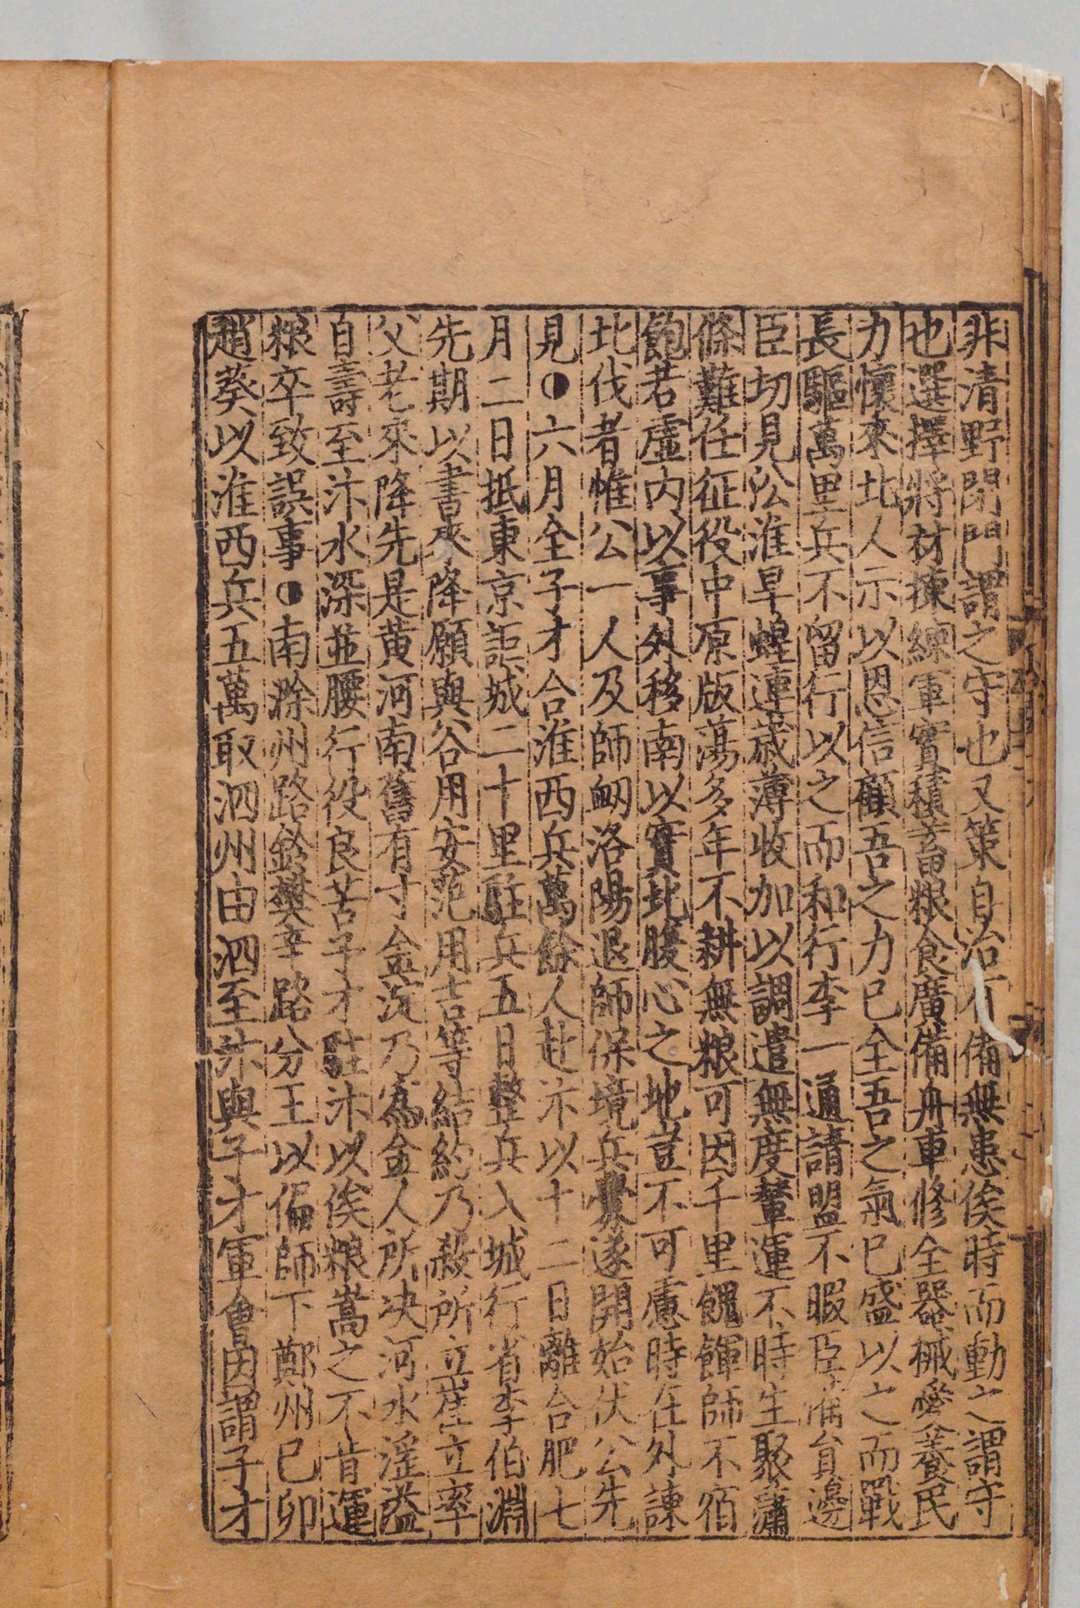 非清野閉門謂之守也又策自治有備無患俟時而動之謂守
也選擇將材揀練軍實積蓄粮食廣備舟車修全器械愛養民
力懷來北人示以恩信顧吾之力已全吾之氣已盛以之而戰
長驅萬里兵不留行以之而和行李一通請盟不暇臣猥負邊
臣切見沿淮旱蝗連歳薄收加以調遣無度輦運不時生聚蕭
條難任征役中原版蕩多年不耕無粮可因千里餽餫師不宿
飽若虛内以事外移南以實北腹心之地豈不可慮時任外諫
北伐者惟公一人及師衂洛陽退師保境兵釁遂開始伏公先
見◑六月全子才合淮西兵萬餘人赴汴以十二日離合肥七
月二日抵東京詎城二十里駐兵五日整兵入城行省李伯淵
先期以書來降願與谷用安范用吉等結約乃殺所立崔立率
父老來降先是黄河南舊有寸金淀乃為金人所决河水淫溢
自壽至汴水深並腰行役良苦子才駐汴以俟粮嵩之不肯運
粮卒致誤事◑南滁州路鈐樊辛路分王以偏師下鄭州已卯
趙葵以淮西兵五萬取泗州由泗至汴與子才軍會因謂子才